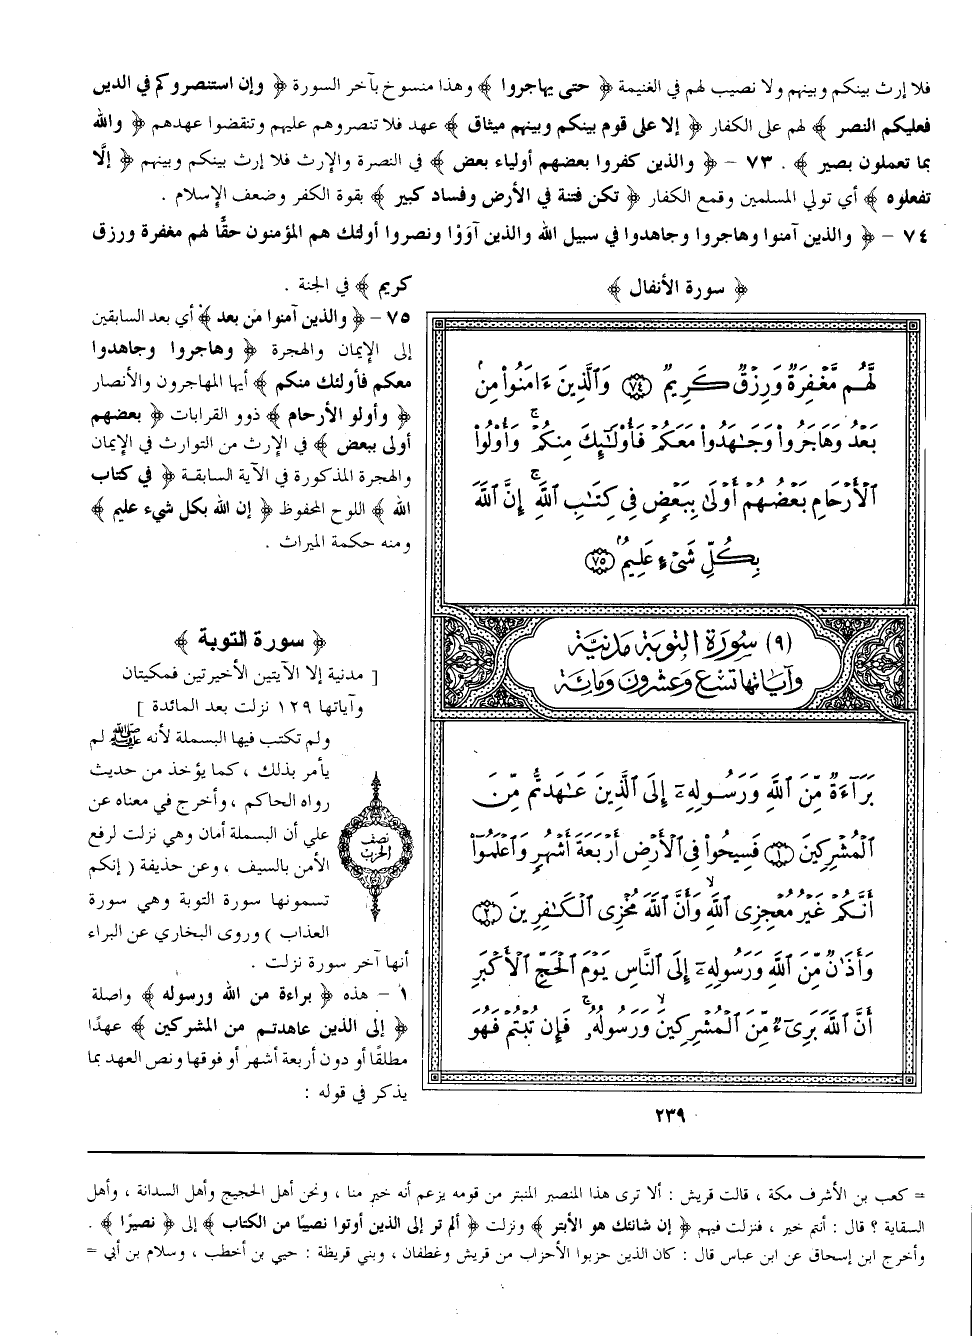 فلا إرث بينكم وبينهم ولا نصيب لهم في الغنيمة ﴿ حتى يهاجروا ﴾ وهذا منسوخ بآخر السورة ﴿ وإن استنصروكم في الدين
فعليكم النصر ﴾ لهم على الكفار ﴿ إلا على قوم بينكم وبينهم ميثاق ﴾ عهد فلا تنصروهم عليهم وتنقضوا عهدهم ﴿ والله
بما تعملون بصير ﴾ . ٧٣ – ﴿ والذين كفروا بعضهم أولياء بعض ﴾ في النصرة والإرث فلا إرث بينكم وبينهم ﴿ إلَّا
تفعلوه ﴾ أي تولي المسلمين وقمع الكفار ﴿ تكن فتنة في الأرض وفساد كبير ﴾ بقوة الكفر وضعف الإسلام .
٧٤ – ﴿ والذين آمنوا وهاجروا وجاهدوا في سبيل الله والذين آوَوْا ونصروا أولئك هم المؤمنون حقًّا لهم مغفرة ورزق
كريم ﴾ في الجنة .
٧٥ – ﴿ والذين آمنوا من بعد ﴾ أي بعد السابقين
إلى الإيمان والهجرة ﴿ وهاجروا وجاهدوا
معكم فأولئك منكم ﴾ أيها المهاجرون والأنصار
﴿ وأولو الأرحام ﴾ ذوو القرابات ﴿ بعضهم
أولى ببعض ﴾ في الإرث من التوارث في الإيمان
والهجرة المذكورة في الآية السابقة ﴿ في كتاب
الله ﴾ اللوح المحفوظ ﴿ إن الله بكل شيء عليم ﴾
ومنه حكمة الميراث .
﴿ سورة الأنفال ﴾
لَّهُم مَّغْفِرَةٌ وَرِزْقٌ كَرِيمٌ ٧٤ وَالَّذِينَ ءَامَنُوا۟ مِنۢ
بَعْدُ وَهَاجَرُوا۟ وَجَـٰهَدُوا۟ مَعَكُمْ فَأُو۟لَـٰٓئِكَ مِنكُمْ ۚ وَأُو۟لُوا۟
ٱلْأَرْحَامِ بَعْضُهُمْ أَوْلَىٰ بِبَعْضٍ فِى كِتَـٰبِ ٱللَّهِ ۚ إِنَّ ٱللَّهَ
بِكُلِّ شَىْءٍ عَلِيمٌۢ ٧٥
(٩) سورة التوبة مدنية
وآياتها تسع وعشرون ومائة
بَرَآءَةٌ مِّنَ ٱللَّهِ وَرَسُولِهِۦٓ إِلَى ٱلَّذِينَ عَـٰهَدتُّم مِّنَ
ٱلْمُشْرِكِينَ ١ فَسِيحُوا۟ فِى ٱلْأَرْضِ أَرْبَعَةَ أَشْهُرٍ وَٱعْلَمُوٓا۟
أَنَّكُمْ غَيْرُ مُعْجِزِى ٱللَّهِ ۙ وَأَنَّ ٱللَّهَ مُخْزِى ٱلْكَـٰفِرِينَ ٢
وَأَذَٰنٌ مِّنَ ٱللَّهِ وَرَسُولِهِۦٓ إِلَى ٱلنَّاسِ يَوْمَ ٱلْحَجِّ ٱلْأَكْبَرِ
أَنَّ ٱللَّهَ بَرِىٓءٌ مِّنَ ٱلْمُشْرِكِينَ ۙ وَرَسُولُهُۥ ۚ فَإِن تُبْتُمْ فَهُوَ
﴿ سورة التوبة ﴾
[ مدنية إلا الآيتين الأخيرتين فمكيتان
وآياتها ١٢٩ نزلت بعد المائدة ]
ولم تكتب فيها البسملة لأنه ﷺ لم
يأمر بذلك ، كما يؤخذ من حديث
رواه الحاكم ، وأخرج في معناه عن
علي أن البسملة أمان وهي نزلت لرفع
الأمن بالسيف ، وعن حذيفة ( إنكم
تسمونها سورة التوبة وهي سورة
العذاب ) وروى البخاري عن البراء
أنها آخر سورة نزلت .
نصف
الحزب
١ – هذه ﴿ براءة من الله ورسوله ﴾ واصلة
﴿ إلى الذين عاهدتم من المشركين ﴾ عهدًا
مطلقًا أو دون أربعة أشهر أو فوقها ونص العهد بما
يذكر في قوله :
٢٣٩
= كعب بن الأشرف مكة ، قالت قريش : ألا ترى هذا المنصبر المنبتر من قومه يزعم أنه خير منا ، ونحن أهل الحجيج وأهل السدانة ، وأهل
السقاية ؟ قال : أنتم خير ، فنزلت فيهم ﴿ إن شانئك هو الأبتر ﴾ ونزلت ﴿ ألم تر إلى الذين أوتوا نصيبًا من الكتاب ﴾ إلى ﴿ نصيرًا ﴾ .
وأخرج ابن إسحاق عن ابن عباس قال : كان الذين حزبوا الأحزاب من قريش وغطفان ، وبني قريظة : حيي بن أخطب ، وسلام بن أبي =